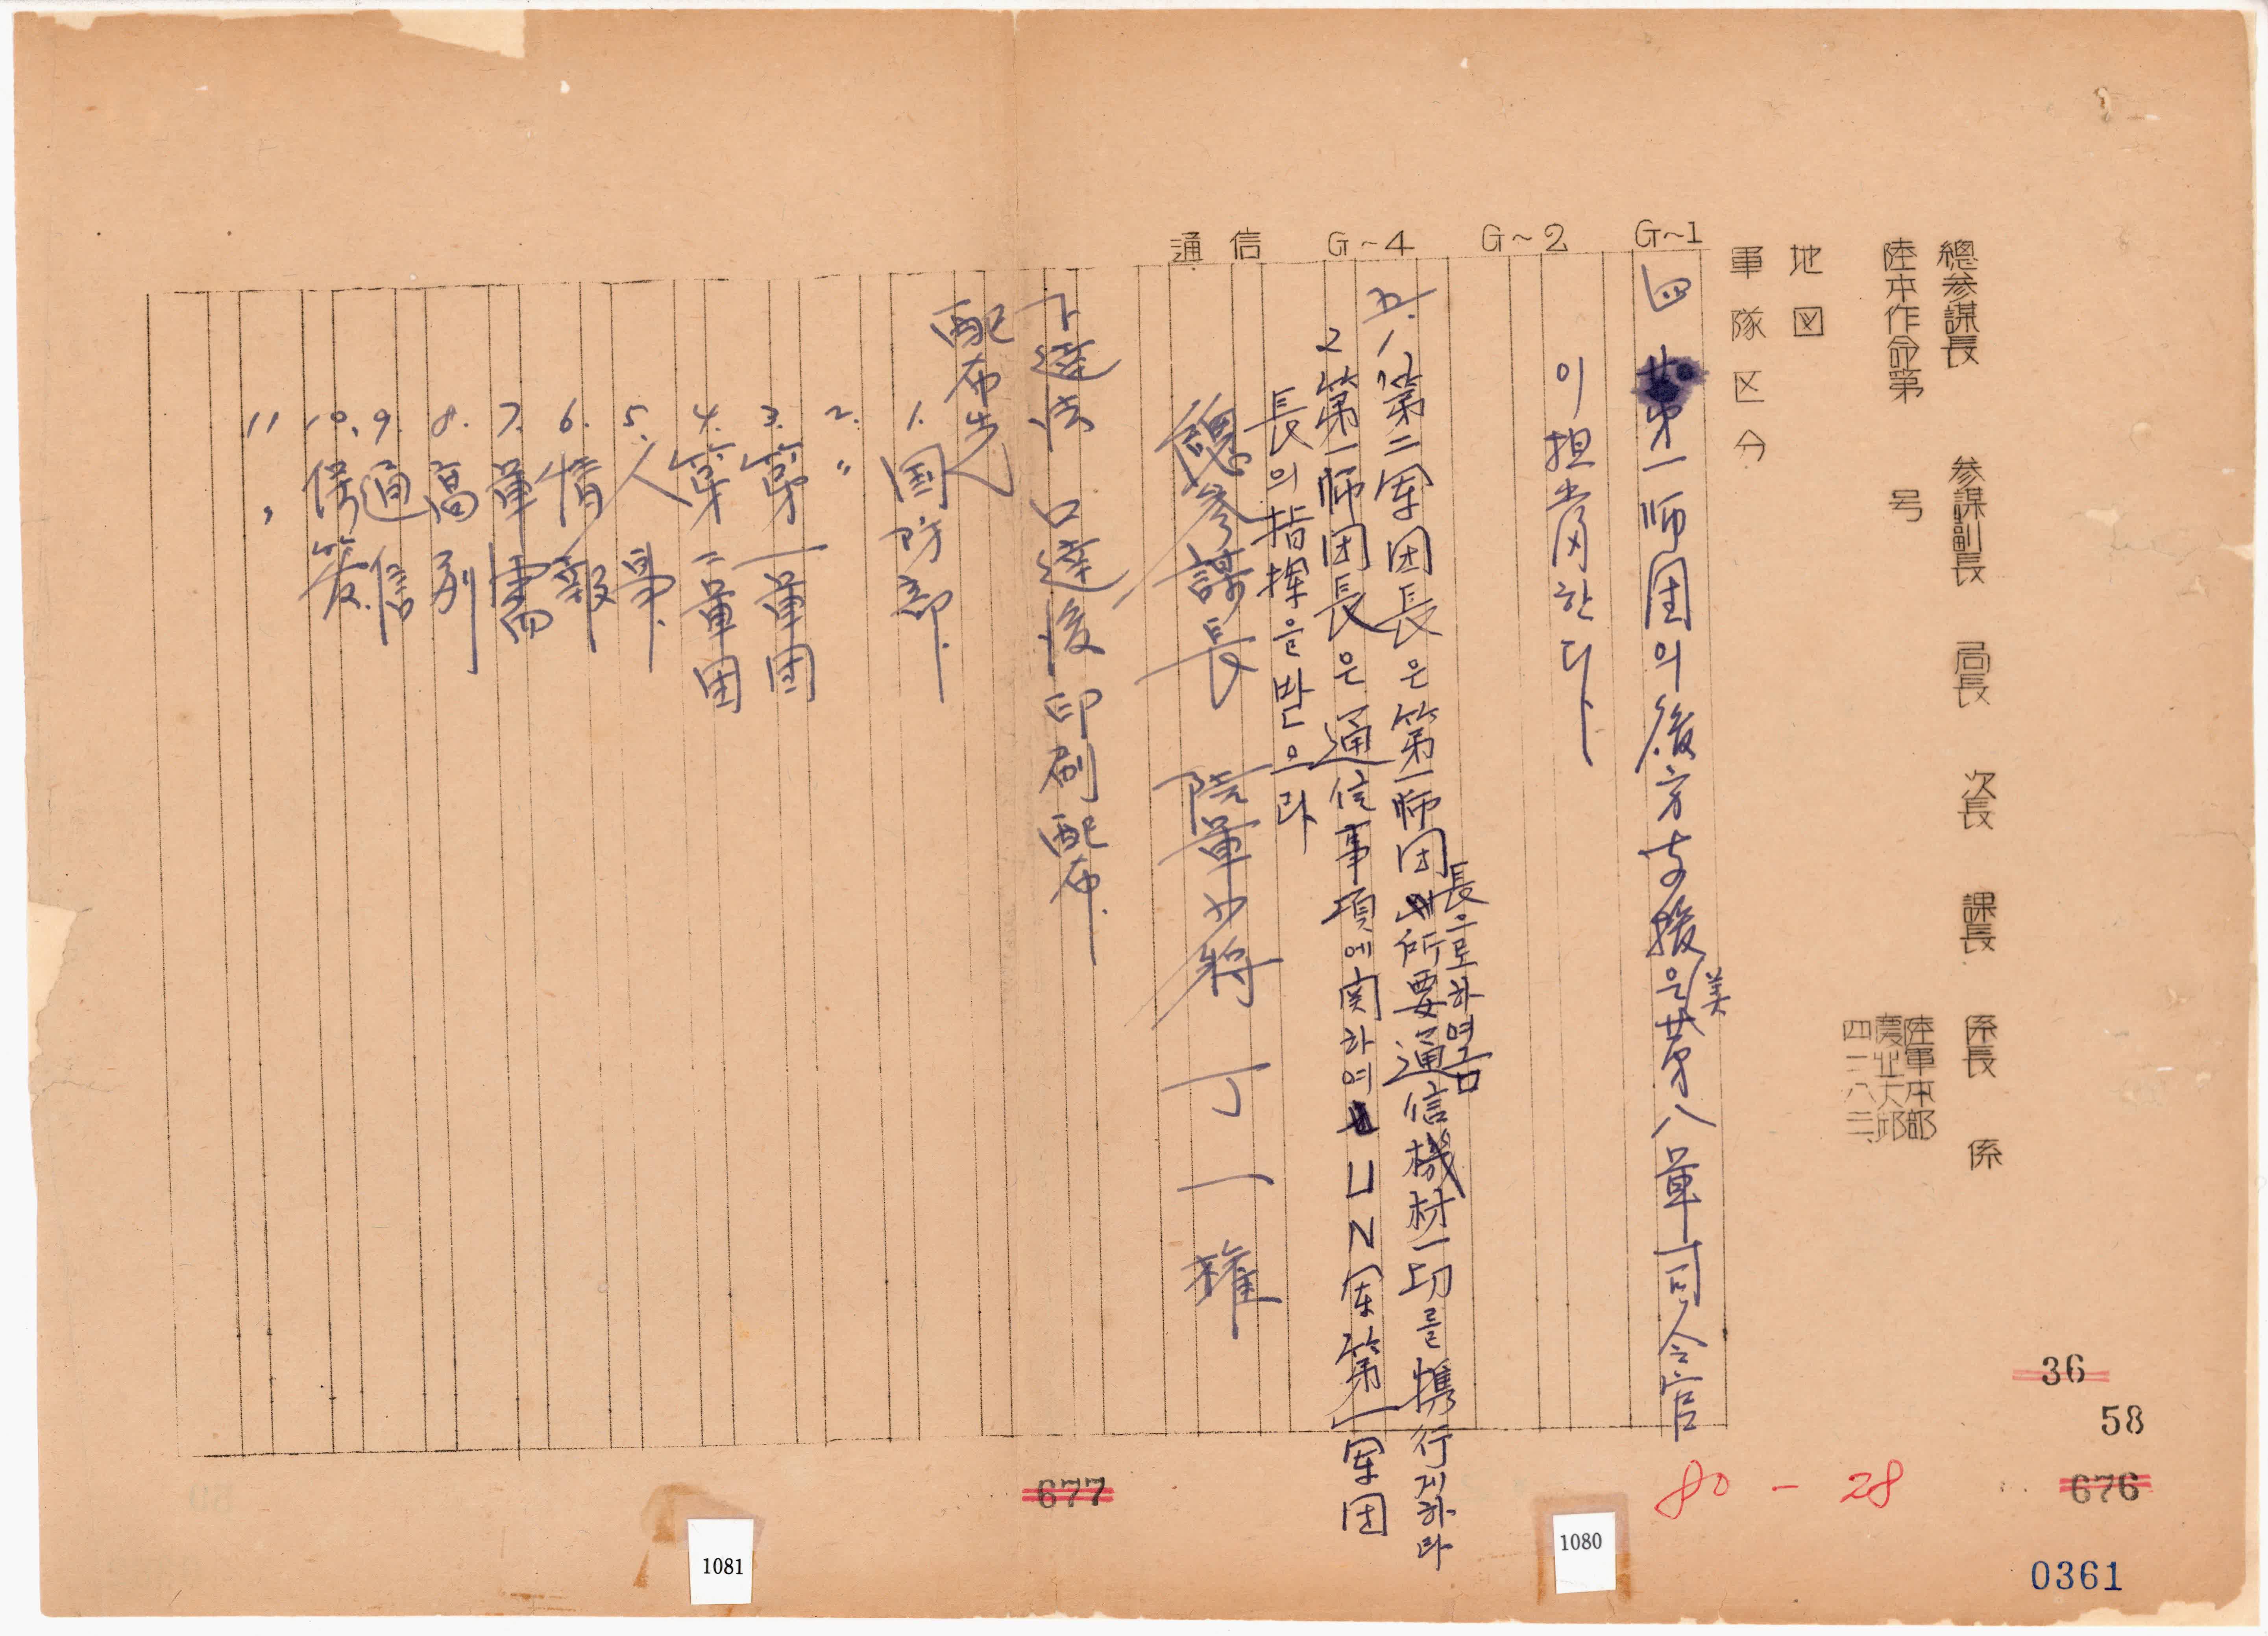 總参謀長 参謀副長 局長 次長 課長 係長 係
陸本作命第 号
陸軍本部
慶北大邱
四二八三、
地図
軍隊区分
G~1
G~2
G~4
通信
四 第一師団의 後方支援은 美第八軍司令官
이 担当한다
五. 1, 第二军团長은 第一师团長으로하여금 所要通信機材一切를 携行게하라
2 第一师団長은 通信事項에 関하여 UN军第一军団
長의 指揮을 받으라
總参謀長 陸軍少將 丁一權
下達法 口達後印刷配布.
配布先
1. 国防部.
2. 〃
3. 第一軍団
4. 第二軍団
5. 人事.
6. 情報
7. 軍需
8. 高級
9. 通信
10.
11 〃
36
58
676
677
80-28
1080
1081
0361